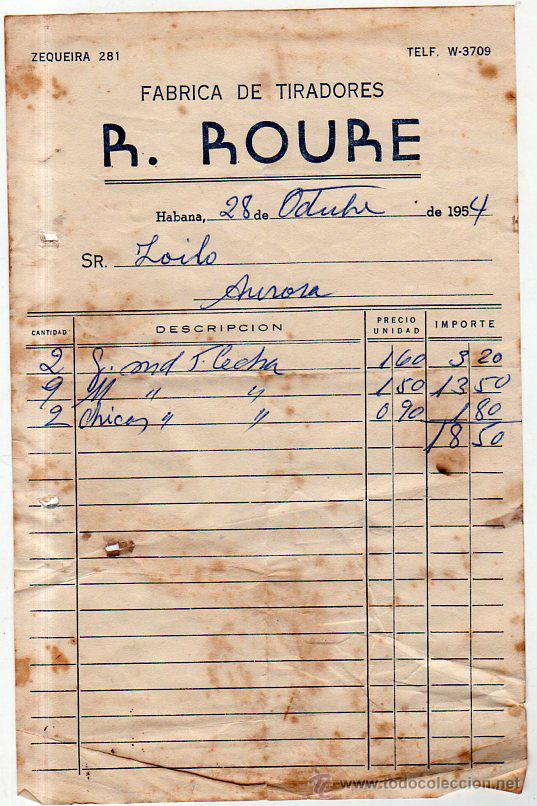 ZEQUEIRA 281 TELF. W-3709
FABRICA DE TIRADORES
R. ROURE
Habana, 28 de Octubre de 1954
SR. Zoilo
Aurora
CANTIDAD DESCRIPCION PRECIO UNIDAD IMPORTE
2 G. md Flecha 1 60 3 20
9 M " " 1 50 13 50
2 Chicas " " 0 90 1 80
18 50
todocoleccion
www.todocoleccion.net